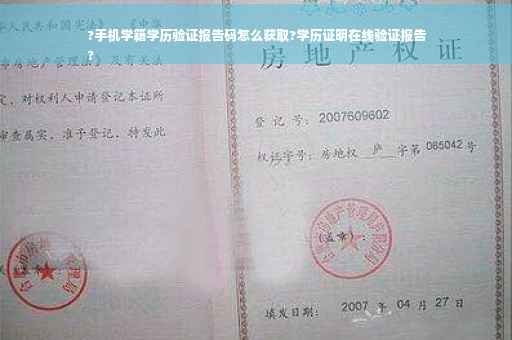 ?手机学籍学历验证报告码怎么获取?学历证明在线验证报告
?
房地产权证
人民共和国宪法》
房地产管理法》及有关法
定，对权利人申请登记本证所
审查属实，准予登记，特发此
登记号：2007609602
权证字号：房地权 庐 字第 085042 号
(盖章)：
填发日期： 2007 年 04 月 27 日